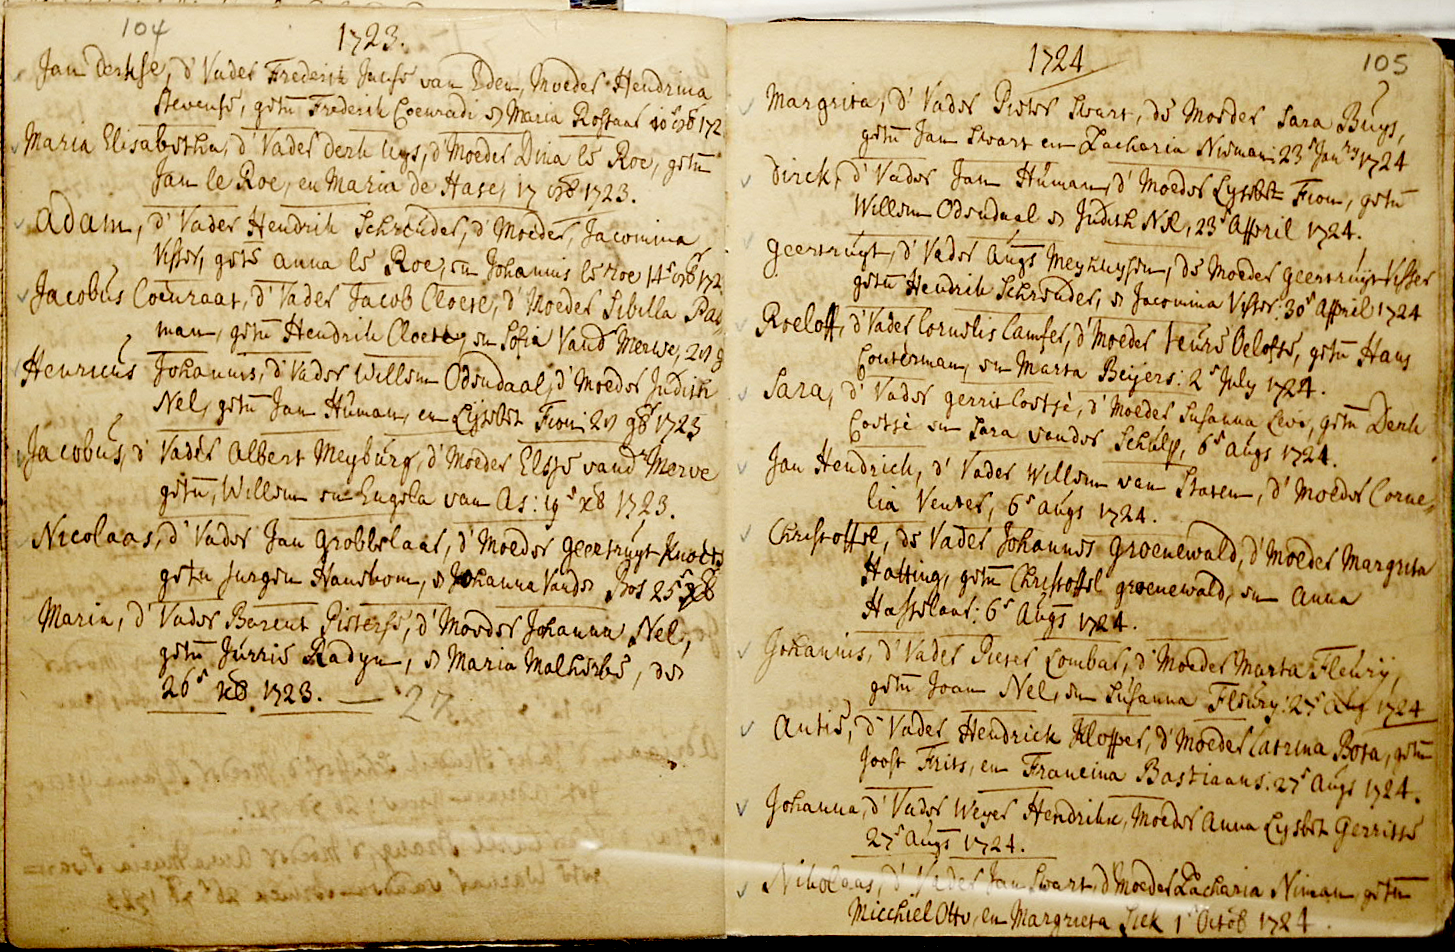 104
1723.
Jan derkse, d' Vader Frederik Jacobse van Eden, Moeder Hendrina
Stevense, getn Frederik Coenradi en Maria Rostaal 10 8b 172
Maria Elisabetha, d' Vader derk Uys, d' Moeder Dina le Roe, getn
Jan le Roe, en Maria de Hase, 17 8b 1723.
Adam, d' Vader Hendrik Schreuder, d' Moeder, Jacomina
Visser, gets anna le Roe, en Johannis le Roe 14 8b 172
Jacobus Coenraat, d' Vader Jacob Cloete, d' Moeder Sibilla Pas
man, getn Hendrik Cloete, en Sofia Vand Merwe, 21
Henricus Johannis, d' Vader Willem Odendaal, d' Moeder Judith
Nel, getn Jan Human, en Lijsbet Fion 21 9b 1723
Jacobus, d' Vader Albert Meyburg, d' Moeder Elsje vand Merve
getn, Willem en Engela van As: 19 xb 1723.
Nicolaas, d' Vader Jan grobbelaar, d' Moeder geertruyt Knoets
getn Jurgen Hanekom, en Johanna Vander Bos 25 xb
Maria, d' Vader Barent Pieterse, d' Moeder Johanna Nel,
getn Jurrie Radyn, en Maria Malherbe, den
26 xb 1723. — 27
1724
105
Margrita, d' Vader Pieter Swart, de Moeder Sara Buys,
getn Jan Swart en Zacharia Nieman 23 Jan 1724
Dirck, d' Vader Jan Human, d' Moeder Lysbet Fion, getn
Willem Odendaal en Judith Nel, 23 Appril 1724.
geertruyt, d' Vader Augs Meyhuysen, de Moeder geertruyt Visser
getn Hendrik Schreuder, en Jacomina Visser 30 Appril 1724
Roeloff, d' Vader Cornelis Camfer, d' Moeder Oelofse, getn Hans
Conterman, en Marta Beyers: 2 July 1724.
Sara, d' Vader gerrit Coetse, d' Moeder Susanna Levi, getn Derk
Coetse en Sara vander Schulp, 6 Augs 1724.
Jan Hendrich, d' Vader Willem van Staten, d' Moeder Corne
lia Venter, 6 Augs 1724.
Christoffel, de Vader Johannes groenewald, d' Moeder Margrita
Hatting, getn Christoffel groenewald, en Anna
Hasselaar: 6 Augs 1724.
Johannis, d' Vader Pieter Lombar, d' Moeder Marta Fleury,
getn Joan Nel, en Susanna Fleury: 27 Aug 1724
Antie, d' Vader Hendrick Klopper, d' Moeder Catrina Bota, getn
Joost Frits, en Francina Bastiaans: 27 Augs 1724.
Johanna, d' Vader Weyer Hendrikse, Moeder Anna Lysbet Gerritse
27 Augs 1724.
Nikolaas, d' Vader Jan Swart, d' Moeder Zacharia Niman getn
Micchiel Otto, en Margrieta Siek 1 Octob 1724.